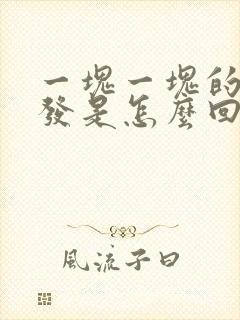 一塊一塊的
發是怎麼回
風流子曰